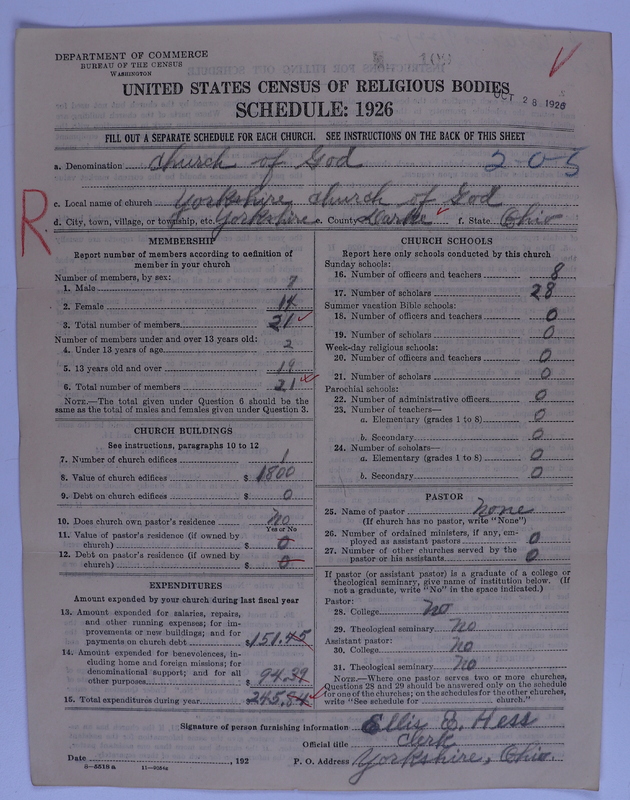 DEPARTMENT OF COMMERCE
BUREAU OF THE CENSUS
WASHINGTON
UNITED STATES CENSUS OF RELIGIOUS BODIES
OCT 28 1926
SCHEDULE: 1926
FILL OUT A SEPARATE SCHEDULE FOR EACH CHURCH. SEE INSTRUCTIONS ON THE BACK OF THIS SHEET
a. Denomination Church of God 2-0-5
c. Local name of church Yorkshire church of God
R
d. City, town, village, or township, etc. Yorkshire e. County Darke f. State Ohio
MEMBERSHIP
Report number of members according to definition of
member in your church
Number of members, by sex:
1. Male 7
2. Female 14
3. Total number of members 21
Number of members under and over 13 years old:
4. Under 13 years of age 2
5. 13 years old and over 19
6. Total number of members 21
NOTE.—The total given under Question 6 should be
same as the total of males and females given under Question 3.
CHURCH BUILDINGS
See instructions, paragraphs 10 to 12
7. Number of church edifices 1
8. Value of church edifices $ 1800
9. Debt on church edifices $ 0
10. Does church own pastor's residence No
Yes or No
11. Value of pastor's residence (if owned by
church) $ 0
12. Debt on pastor's residence (if owned by
church) $ 0
EXPENDITURES
Amount expended by your church during last fiscal year
13. Amount expended for salaries, repairs,
and other running expenses; for im-
provements or new buildings; and for
payments on church debt $ 151.45
14. Amount expended for benevolences, in-
cluding home and foreign missions; for
denominational support; and for all
other purposes $ 94.39
15. Total expenditures during year $ 245.84
CHURCH SCHOOLS
Report here only schools conducted by this church
Sunday schools:
16. Number of officers and teachers 8
17. Number of scholars 28
Summer vacation Bible schools:
18. Number of officers and teachers 0
19. Number of scholars 0
Week-day religious schools:
20. Number of officers and teachers 0
21. Number of scholars 0
Parochial schools:
22. Number of administrative officers 0
23. Number of teachers—
a. Elementary (grades 1 to 8) 0
b. Secondary 0
24. Number of scholars—
a. Elementary (grades 1 to 8) 0
b. Secondary 0
PASTOR
25. Name of pastor None
(If church has no pastor, write "None")
26. Number of ordained ministers, if any, em-
ployed as assistant pastors 0
27. Number of other churches served by the
pastor or his assistants 0
If pastor (or assistant pastor) is a graduate of a college or
theological seminary, give name of institution below. (If
not a graduate, write "No" in the space indicated.)
Pastor:
28. College No
29. Theological seminary No
Assistant pastor:
30. College No
31. Theological seminary No
NOTE.—Where one pastor serves two or more churches,
Questions 28 and 29 should be answered only on the schedule
for one of the churches; on the schedules for the other churches,
write "See schedule for church."
Signature of person furnishing information Ellis Hess
Official title Clerk
Date , 192 P. O. Address Yorkshire, Ohio.
8—5518a